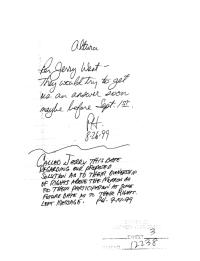 Altura
Per Jerry West -
They would try to get
me an answer soon
maybe before Sept. 1st.
P.H.
8-26-99
CALLED JERRY THIS DATE
REGARDING OUR PROPOSED
SOLUTION AS TO THEIR OWNERSHIP
OF RIGHTS ABOVE THE MORROW AS
TO THEIR PARTICIPATION AT SOME
FUTURE DATE AS TO THOSE RIGHTS
LEFT MESSAGE. P.H. 9-10-99
3
12238